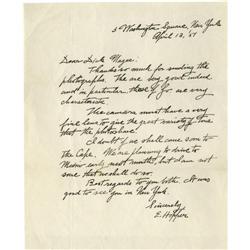 3 Washington Square, New York
April 13, '57
Dear Dick Magee:
Thanks so much for sending the
photographs. The are very good indeed
and in particular, those of Jo are very
characteristic.
The camera must have a very
fine lens to give the great variety of tone
that the photos have!
I doubt if we shall come soon to
the Cape. We are planning to drive to
Mexico early next month, but I am not
sure that we shall do so.
Best regards to you both. It was
good to see you in New York.
Sincerely
E. Hopper